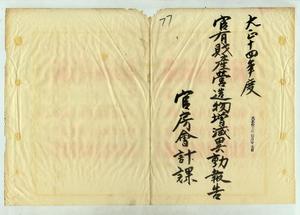 大正十四年度
官有財産營造物増減異動報告
官房會計課
77